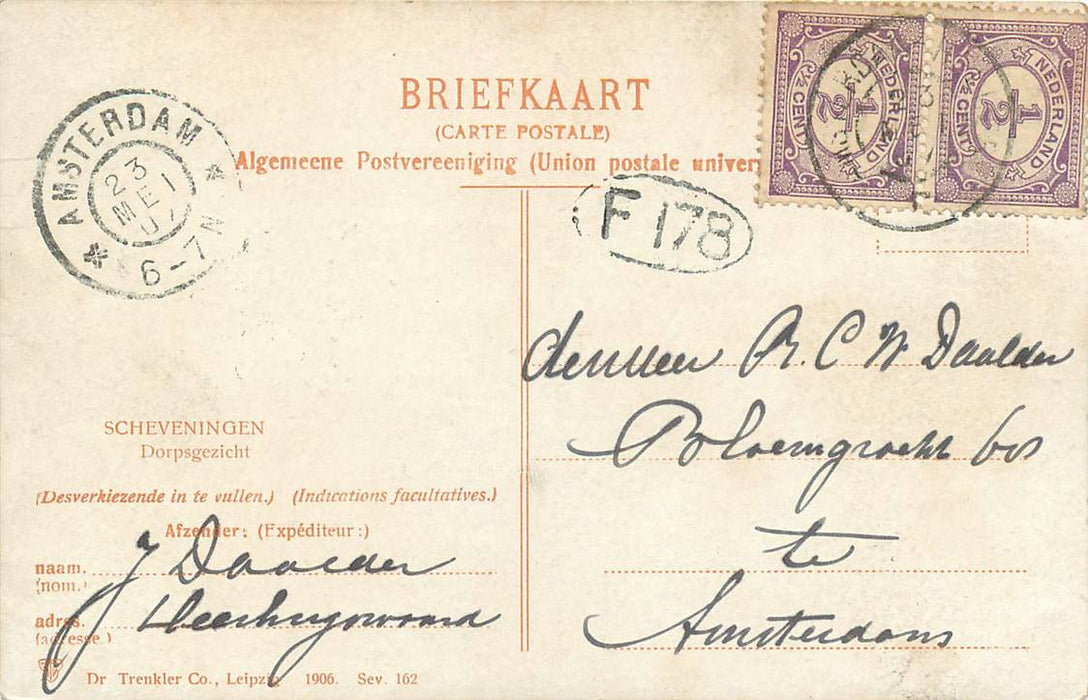 BRIEFKAART
(CARTE POSTALE)
Algemeene Postvereeniging (Union postale univer
NEDERLAND
1/2
½ CENT ½
NEDERLAND
1/2
½ CENT ½
AMSTERDAM
23
MEI
07
6-7N
F 178
SCHEVENINGEN
Dorpsgezicht
(Desverkiezende in te vullen.) (Indications facultatives.)
Afzender: (Expéditeur:)
naam. J Daalder
(nom.)
adres. Heerhugowaard
(adresse.)
Dr. Trenkler Co., Leipzig 1906. Sev. 162
C W Daalder
Bloemgracht
te
Amsterdam